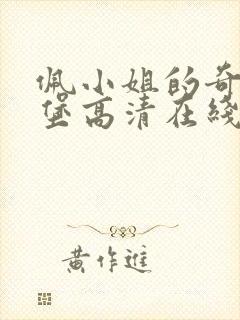 佩小姐的奇
堡高清在线
黄作进